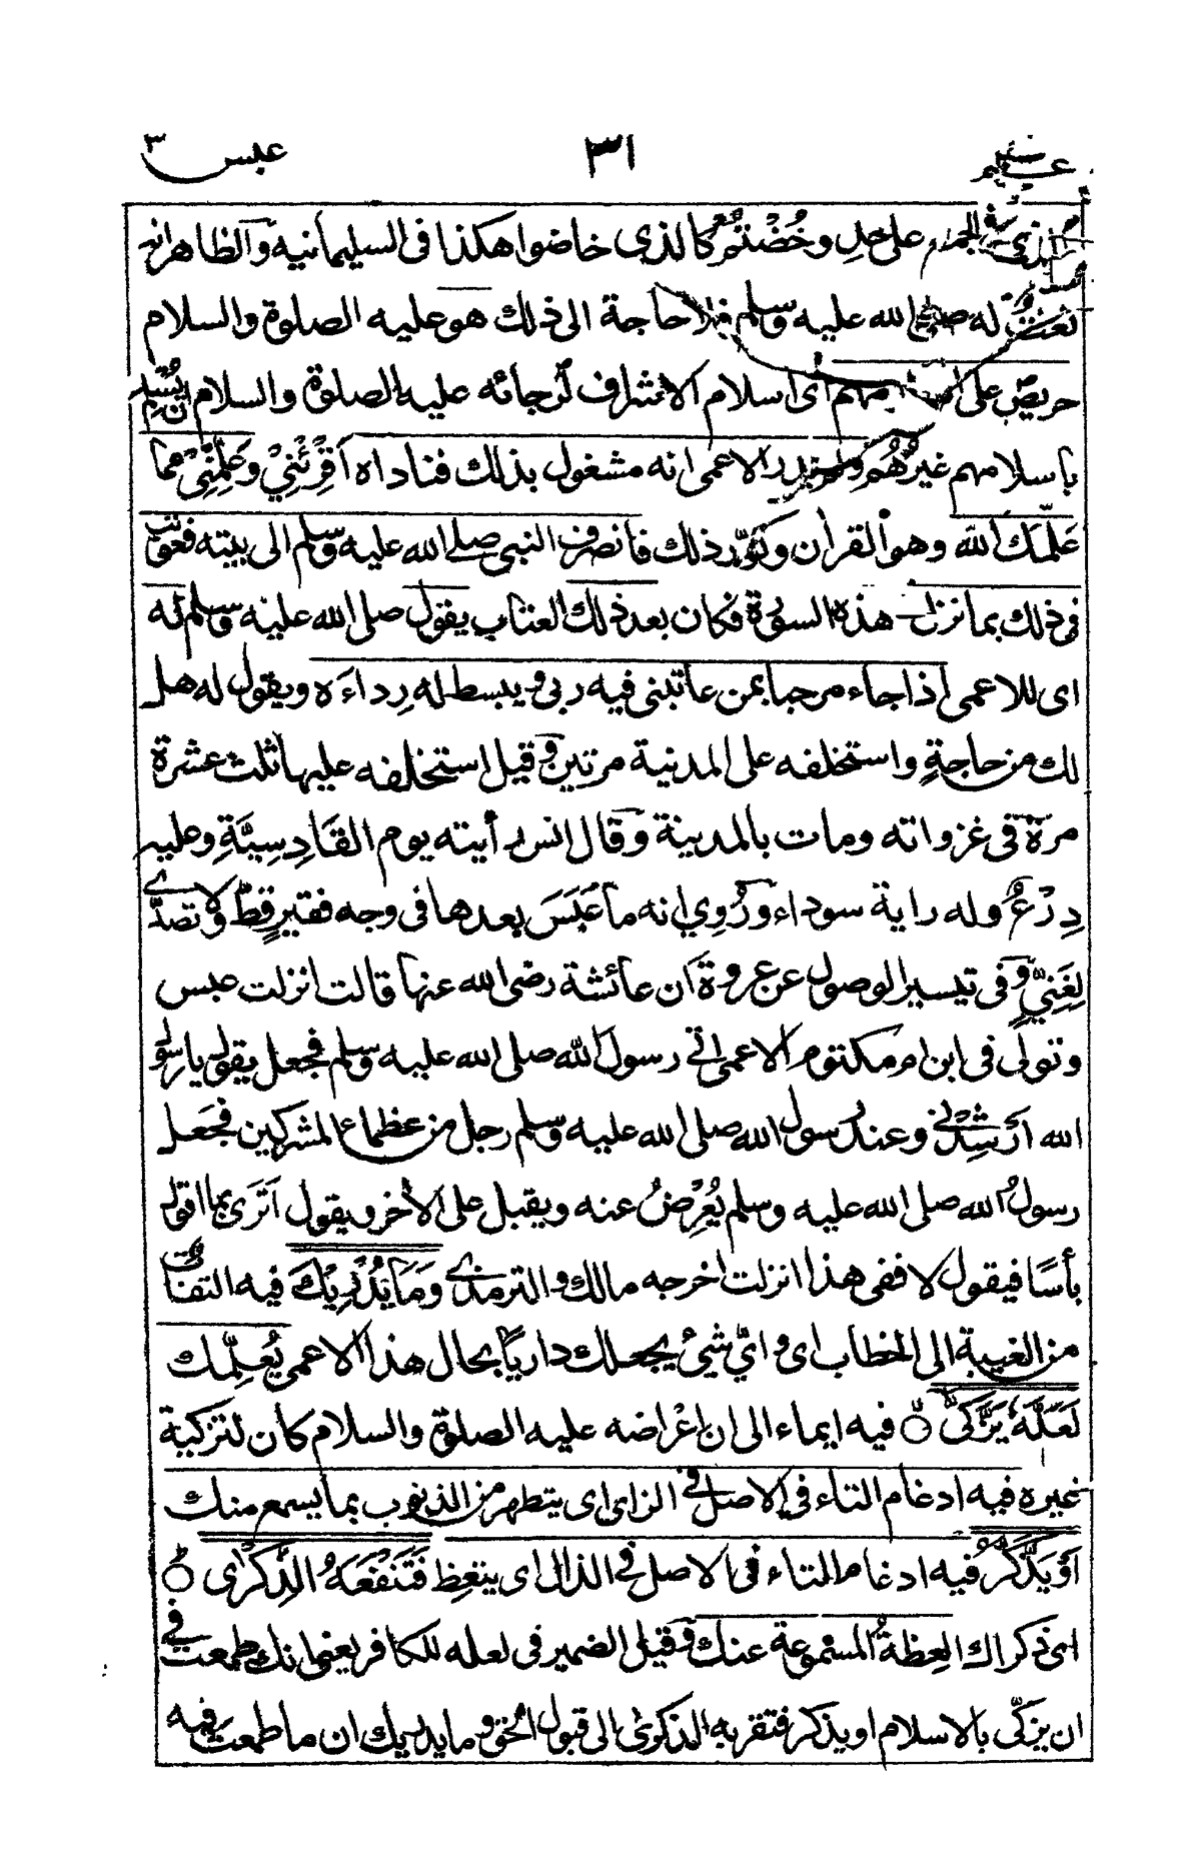 عبس ٣١ عبس ٣
على حد وخضتم كالذى خاضوا هكذا فى السليمانية والظاهرانه
له صلى الله عليه وسلم فلا حاجة الى ذلك هو عليه الصلوة والسلام
حريص على اى اسلام الاشراف لرجائه عليه الصلوة والسلام ان يُسْلِمَ
باسلامهم غيرُهُم ولم يدر الاعمى انه مشغول بذلك فناداه اَقْرِئْنِيْ وعَلِّمْنِيْ مما
عَلَّمَكَ اللهُ وهو القران وكَرَّر ذلك فانصرف النبى صلے الله عليه وسلم الى بيته فعُوتب
فى ذلك بما نزل هذه السورة فكان بعد ذلك العتاب يقول صلى الله عليه وسلم لَه
اى للاعمى اذا جاء مرحبا بمن عاتبنى فيه ربى و يبسط له رِداءَه ويقول له هل
لك من حاجةٍ واستخلفه على المدينة مرتين وقيل استخلفه عليها ثلث عشرة
مرة فى غزواته ومات بالمدينة وقال انس رأيته يوم القَادِسِيَّةِ وعليه
دِرْعٌ وله راية سوداء ورُوِيَ انه ما عَبَسَ بعدها فى وجه فقيرٍ قطُّ ولا تصدّے
لِغَنِيٍّ وفى تيسير الوصول عن عروة ان عائشة رضى الله عنها قالت انزلت عبس
وتولى فى ابن ام مكتوم الاعمى اتى رسول الله صلى الله عليه وسلم فجعل يقول يا رسول
الله اَرْشِدْنِيْ وعند رسول الله صلى الله عليه وسلم رجل من عظماء المشركين فجَعل
رسولُ الله صلى الله عليه وسلم يُعْرِضُ عنه ويقبل على الأخر ويقول اَتَرَى بما اقول
بأسًا فيقول لا ففى هذا انزلت اخرجه مالك والترمذى وَمَا يُدْرِيْكَ فيه التفات
من الغيبة الى الخطاب اى و اىّ شئ يجعلك داريًا بحال هذا الاعمى يُعَلِّمك
لَعَلَّهٗ يَزَّكّٰى فيه ايماء الى ان اِعْراضه عليه الصلوة والسلام كان لتزكية
غيره فيه ادغام التاء فى الاصل فى الزاى اى يتطهر من الذنوب بما يسمع منك
اَوْ يَذَّكَّرُ فيه ادغام التاء فى الاصل فى الذال اى يتعظ فَتَنْفَعَهُ الذِّكْرٰى
اى ذكراك العِظةُ المسموعة عنك وقيل الضمير فى لعله للكافر يعنى انك طمعت فى
ان يزكّى بالاسلام او يذكر فتقربه الذكرى الى قبول الحق وما يدريك ان ما طمعت فيه